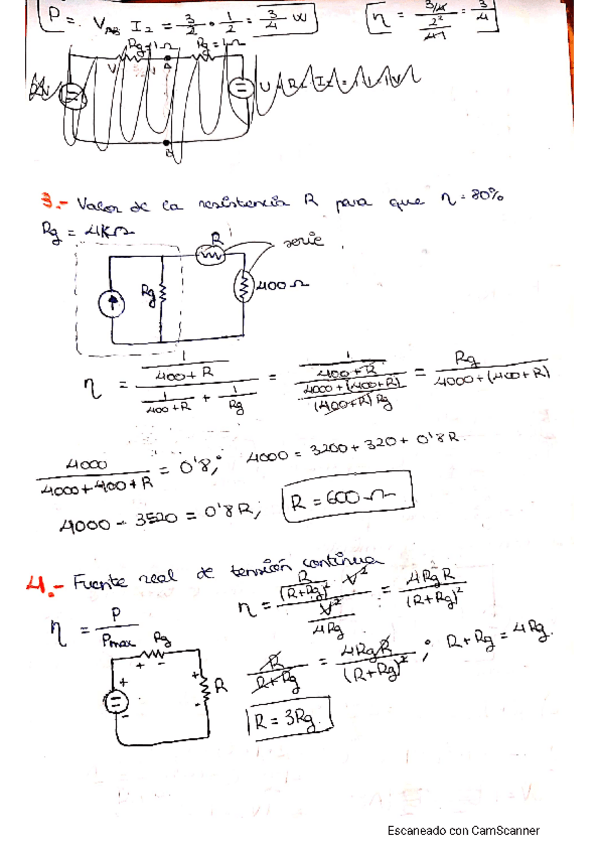 P = V_AB I_2 = 3/2 · 1/2 = 3/4 W
η = = 3/4
Rg = 1Ω Rg = 1Ω
3.- Valor de la resistencia R para que η = 80%
Rg = 4KΩ
R serie
Rg 400Ω
η = (1/(400+R)) / (1/(400+R) + 1/Rg) = (1/(400+R)) / ((4000+(400+R))/((400+R)Rg)) = Rg/(4000+(400+R))
4000/(4000+400+R) = 0'8; 4000 = 3200+320+0'8R
4000 - 3520 = 0'8R; R = 600Ω
4.- Fuente real de tensión continua
η = P/Pmax η = (R/(R+Rg)² V²) / (V²/4Rg) = 4RgR/(R+Rg)²
Rg
+ -
+ + R
- -
R/(R+Rg) = 4RgR/(R+Rg)²; R+Rg = 4Rg.
R = 3Rg
Escaneado con CamScanner